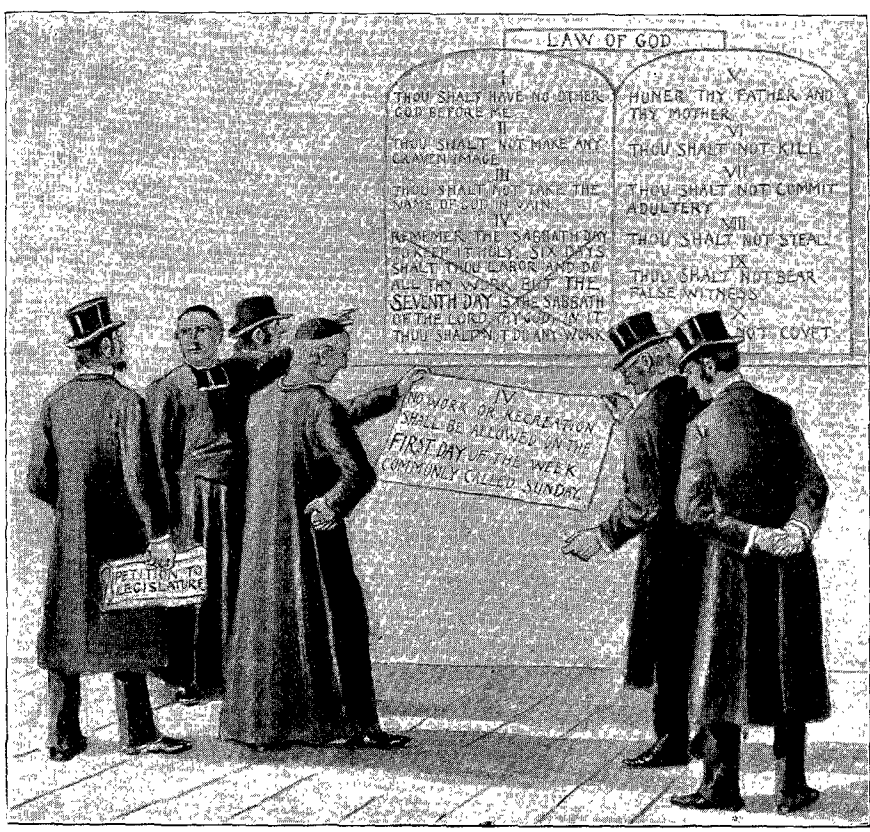 LAW OF GOD
I
THOU SHALT HAVE NO OTHER
GOD BEFORE ME
II
THOU SHALT NOT MAKE ANY
GRAVEN IMAGE
III
THOU SHALT NOT TAKE THE
NAME OF GOD IN VAIN
IV
REMEMER THE SABBATH DAY
TO KEEP IT HOLY. SIX DAYS
SHALT THOU LABOR AND DO
ALL THY WORK BUT THE
SEVENTH DAY IS THE SABBATH
OF THE LORD THY GOD. IN IT
THOU SHALD N'T DO ANY WORK
V
HUNER THY FATHER AND
THY MOTHER
VI
THOU SHALT NOT KILL
VII
THOU SHALT NOT COMMIT
ADULTERY
VIII
THOU SHALT NOT STEAL
IX
THOU SHALT NOT BEAR
FALSE WITNERS
X
NOT COVET
IV
NO WORK OR RECREATION
SHALL BE ALLOWED ON THE
FIRST DAY OF THE WEEK
COMMONLY CALLED SUNDAY.
PETITION TO
LEGISLATURE